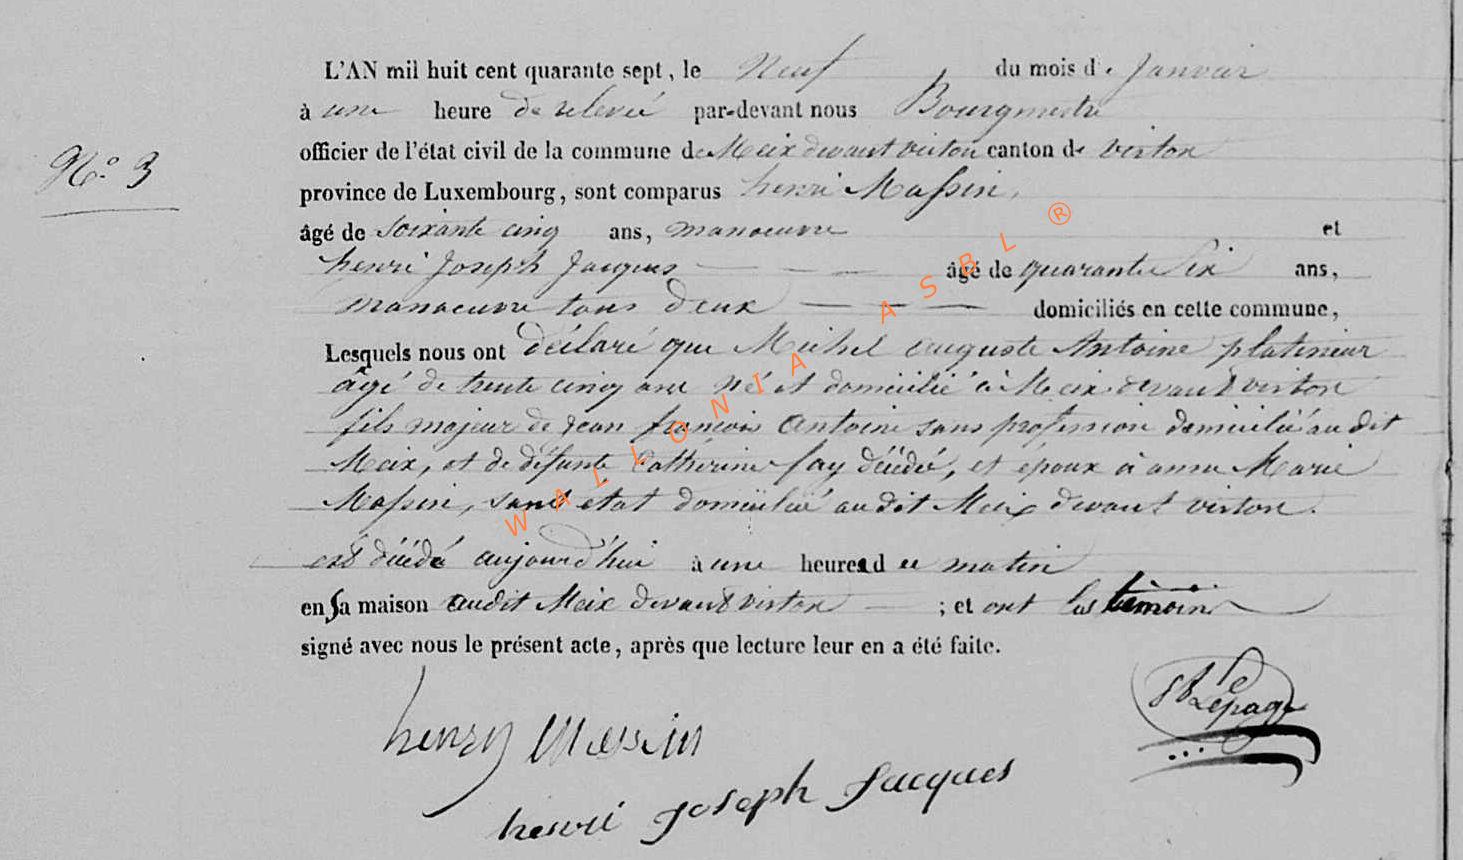 L'AN mil huit cent quarante sept, le Neuf du mois de Janvier
à une heure de relevée par-devant nous Bourgmestre
officier de l'état civil de la commune de Meix devant virton canton de virton
N.° 3
province de Luxembourg, sont comparus henri Massin,
âgé de soixante cinq ans, manoeuvre et
henri Joseph Jacques âgé de quarante Six ans,
manoeuvre tous deux domiciliés en cette commune,
Lesquels nous ont déclaré que Michel auguste Antoine platineur
âgé de trente cinq ans Né et domicilié à Meix devant virton
fils majeur de jean françois Antoine sans profession domicilié au dit
Meix, et de défunte Catherine fay décédé, et époux à anne Marie
Massin, sans etat domicilié au dit Meix devant virton.
est décédé aujourd'hui à une heures du matin
en sa maison audit Meix devant virton ; et ont les témoins
signé avec nous le présent acte, après que lecture leur en a été faite.
henry Massin
Lepage
henri Joseph Jacques
WALLONIA ASBL ®